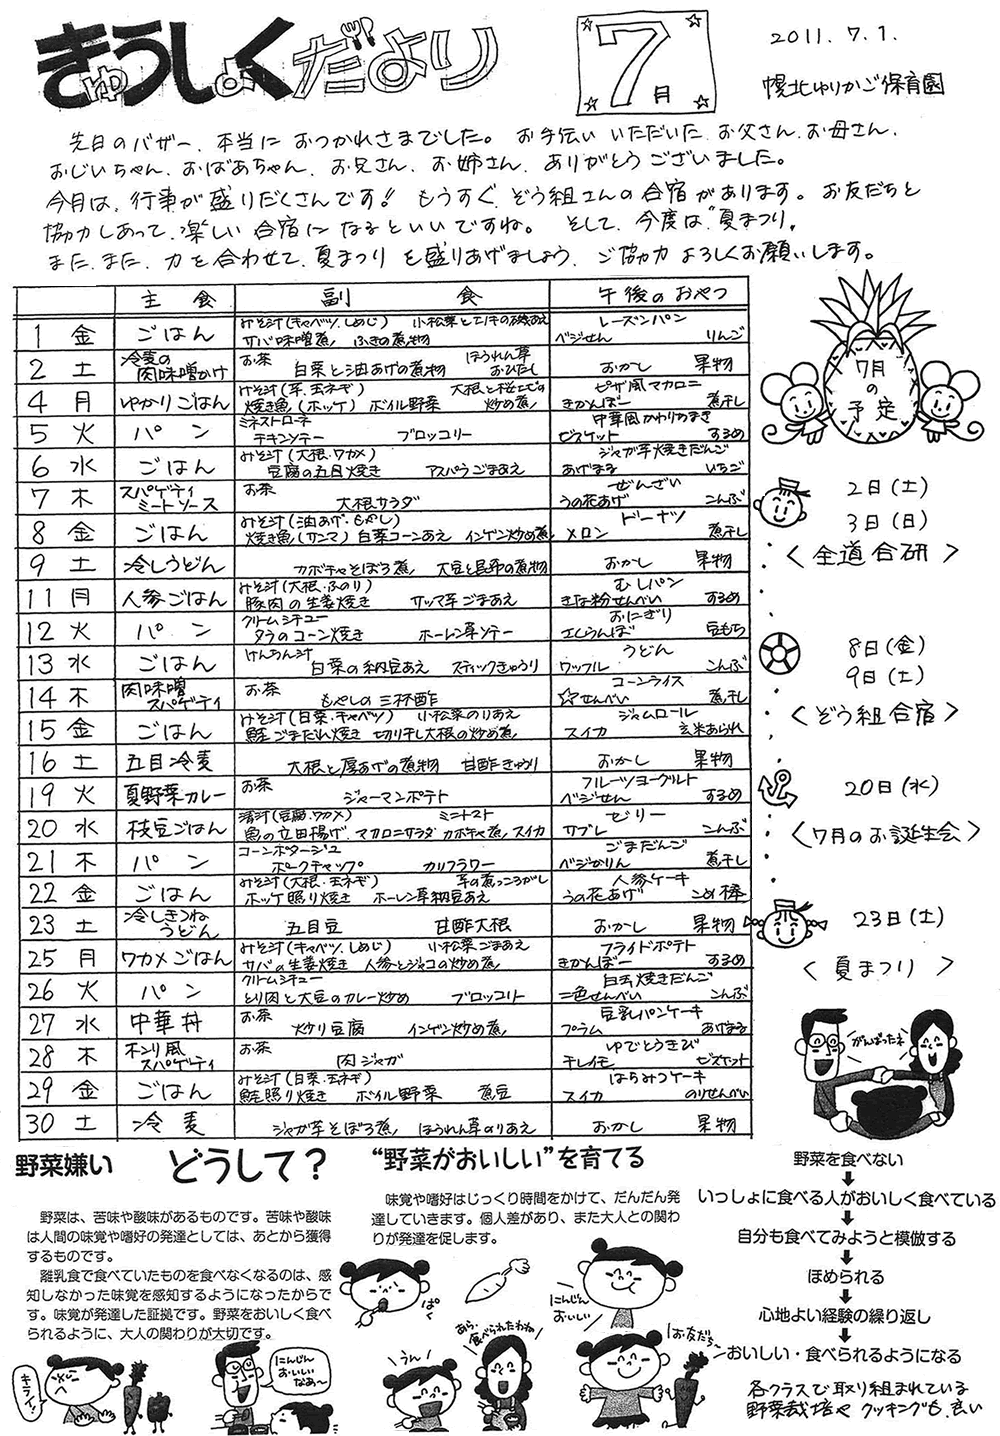 きゅうしょくだより
7月
2011.7.1.
幌北ゆりかご保育園
先日のバザー、本当に おつかれさまでした。 お手伝い いただいた お父さん、お母さん、
おじいちゃん、おばあちゃん、お兄さん、お姉さん、ありがとう ございました。
今月は、行事が 盛りだくさんです!! もうすぐ、ぞう組さんの合宿があります。 お友だちと
協力しあって、楽しい 合宿に なるといいですね。 そして、今度は“夏まつり”
また、また、力を合わせて、夏まつり を盛りあげましょう。 ご協力 よろしくお願いします。
主 食 副 食 午後のおやつ
1 金 ごはん みそ汁(キャベツ、しめじ) 小松菜とエノキの磯あえ サバ味噌煮 ふきの煮物 レーズンパン ベジせん りんご
2 土 冷麦の肉味噌かけ お茶 白菜と油あげの煮物 ほうれん草おひたし おかし 果物
4 月 ゆかりごはん みそ汁(芋、玉ネギ) 大根と桜エビの炒め煮 焼き魚(ホッケ) ボイル野菜 ピザ風マカロニ きかんぼー 煮干し
5 火 パン ミネストローネ チキンソテー ブロッコリー 中華風かわりおやき ビスケット するめ
6 水 ごはん みそ汁(大根・ワカメ) 豆腐の五目焼き アスパラごまあえ ジャガ芋焼きだんご あげまる いちご
7 木 スパゲティミートソース お茶 大根サラダ ぜんざい うの花あげ こんぶ
8 金 ごはん みそ汁(油あげ・もやし) 焼き魚(サンマ) 白菜コーンあえ インゲン炒め煮 ドーナツ メロン 煮干し
9 土 冷しうどん カボチャそぼろ煮 大豆と昆布の煮物 おかし 果物
11 月 人参ごはん みそ汁(大根・ふのり) 豚肉の生姜焼き サツマ芋ごまあえ むしパン きな粉せんべい するめ
12 火 パン クリームシチュー タラのコーン焼き ホーレン草ソテー おにぎり えじうんぼ 豆もち
13 水 ごはん けんちん汁 白菜の納豆あえ スティックきゅうり うどん ワッフル こんぶ
14 木 肉味噌スパゲティ お茶 もやしの三杯酢 コーンライス ☆せんべい 煮干し
15 金 ごはん みそ汁(白菜・キャベツ) 小松菜のりあえ 鮭ごまだれ焼き 切り干し大根の炒め煮 ジャムロール スイカ 玄米あられ
16 土 五目冷麦 大根と厚あげの煮物 甘酢きゅうり おかし 果物
19 火 夏野菜カレー お茶 ジャーマンポテト フルーツヨーグルト ベジせん するめ
20 水 枝豆ごはん 清汁(豆腐・ワカメ) ミニトマト 魚の立田揚げ マカロニサラダ カボチャ煮、スイカ ゼリー サブレ こんぶ
21 木 パン コーンポタージュ ポークチャップ カリフラワー ごまだんご ベジかりん 煮干し
22 金 ごはん みそ汁(大根・玉ネギ) 芋の煮っころがし ホッケ照り焼き ホーレン草納豆あえ 人参ケーキ うの花あげ こめ棒
23 土 冷しきつねうどん 五目豆 甘酢大根 おかし 果物
25 月 ワカメごはん みそ汁(キャベツ、しめじ) 小松菜ごまあえ サバの生姜焼き 人参とジャコの炒め煮 フライドポテト きかんぼー するめ
26 火 パン クリームシチュー とり肉と大豆のカレー炒め ブロッコリー 白玉焼きだんご 二色せんべい こんぶ
27 水 中華丼 お茶 炒り豆腐 インゲン炒め煮 豆乳パンケーキ プラム あげまる
28 木 ボンゴレ風スパゲティ お茶 肉ジャガ ゆでとうきび チレイモ ビスケット
29 金 ごはん みそ汁(白菜・玉ネギ) 鮭照り焼き ボイル野菜 煮豆 はちみつケーキ スイカ のりせんべい
30 土 冷麦 ジャガ芋そぼろ煮 ほうれん草のりあえ おかし 果物
7月の予定
2日(土)
3日(日)
<全道合研>
8日(金)
9日(土)
<ぞう組合宿>
20日(水)
<7月のお誕生会>
23日(土)
<夏まつり>
がんばったネ
野菜嫌い どうして?
野菜は、苦味や酸味があるものです。苦味や酸味
は人間の味覚や嗜好の発達としては、あとから獲得
するものです。
離乳食で食べていたものを食べなくなるのは、感
知しなかった味覚を感知するようになったからで
す。味覚が発達した証拠です。野菜をおいしく食べ
られるように、大人の関わりが大切です。
キライッ!
にんじんおいしいなあ〜
“野菜がおいしい”を育てる
味覚や嗜好はじっくり時間をかけて、だんだん発
達していきます。個人差があり、また大人との関わ
りが発達を促します。
ぱく
うん
あら、食べられたわね
にんじんおいしい
お友だち
野菜を食べない
↓
いっしょに食べる人がおいしく食べている
↓
自分も食べてみようと模倣する
↓
ほめられる
↓
心地よい経験の繰り返し
↓
おいしい・食べられるようになる
各クラスで取り組まれている
野菜栽培や クッキングも、良い